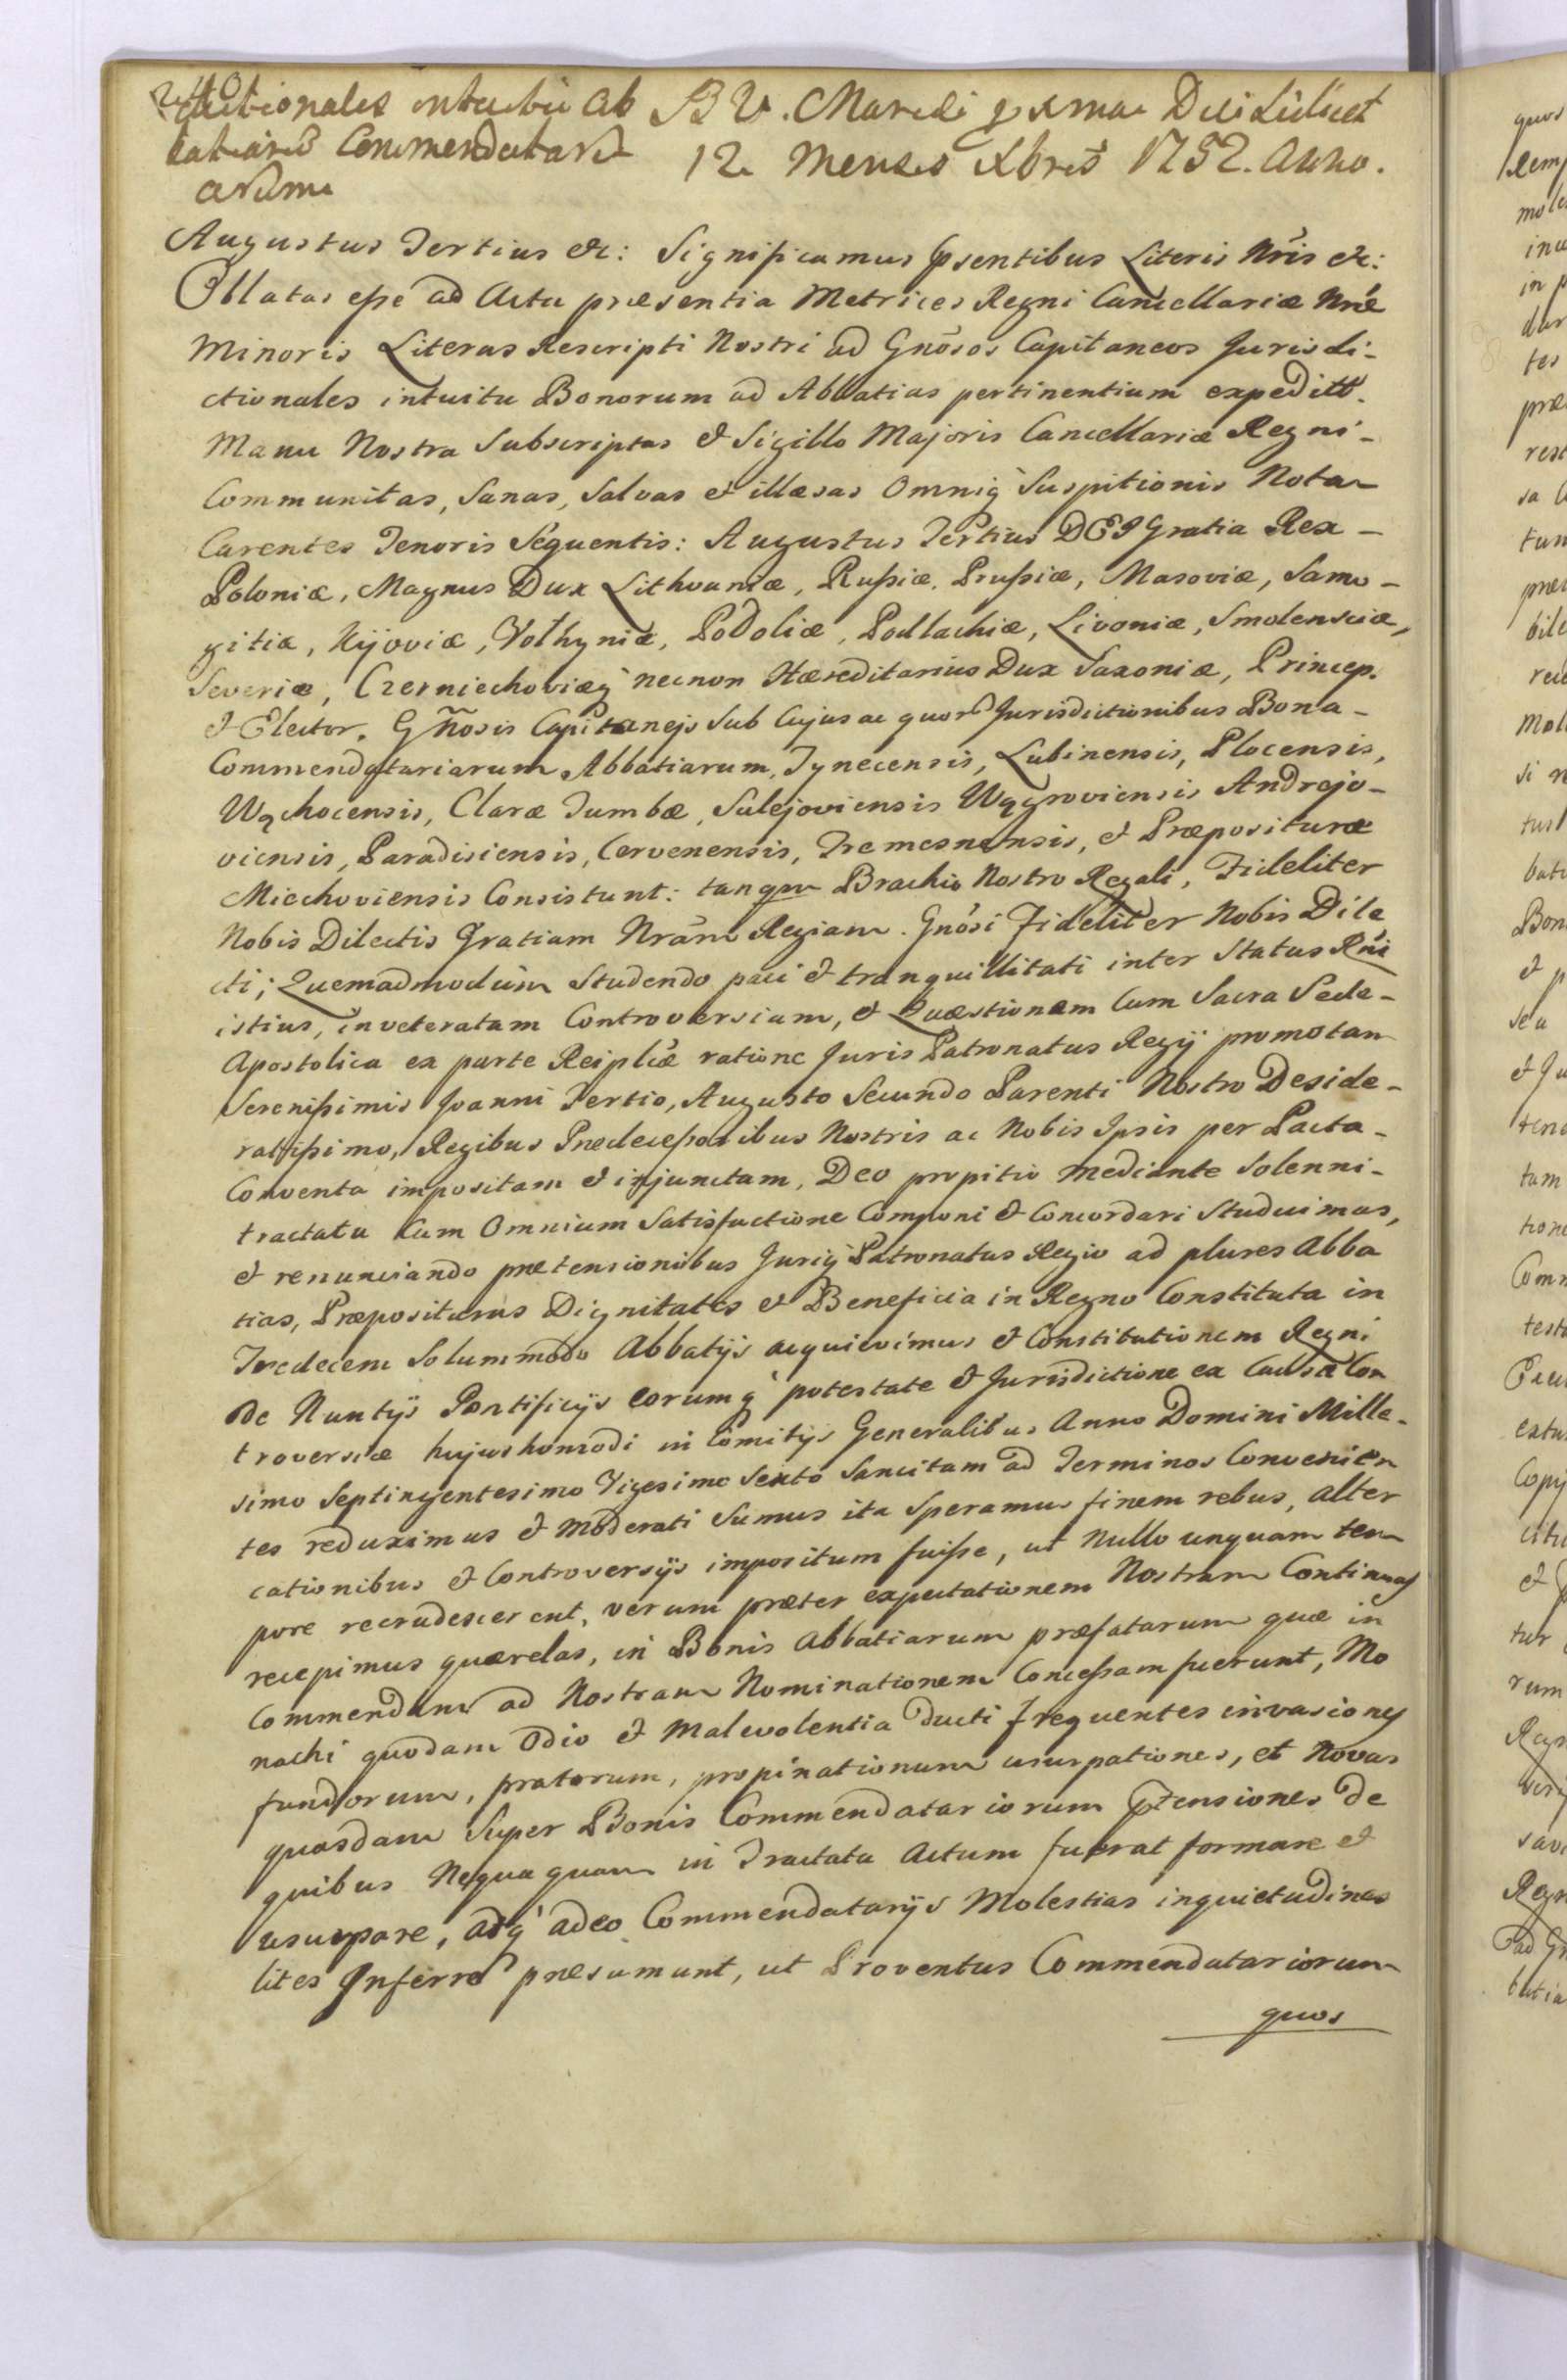 240
dictionales intuitu Ab B V. Mariæ proxima Die Scilicet
batiarũ Commendatari 12 Mensis Xbris 1752. Anno.
arum
Augustus Tertius &c: Significamus psentibus Literis Nris &c:
Oblatas esse ad Acta præsentia Metrices Regni Cancellariæ Nræ
Minoris Literas Rescripti Nostri ad Gnosos Capitaneos Jurisdi-
ctionales intuitu Bonorum ad Abbatias pertinentium expeditt.
Manu Nostra Subscriptas & Sigillo Majoris Cancellariæ Regni-
Communitas, Sanas, Salvas et illæsas Omniq Suspitionis Nota
Carentes Tenoris Sequentis: Augustus Tertius DEI Gratia Rex -
Poloniæ, Magnus Dux Lithvaniæ, Russiæ, Prussiæ, Masoviæ, Samo -
gitiæ, Kijoviæ, Volhyniæ, Podoliæ, Podlachiæ, Livoniæ, Smolensciæ,
Severiæ, Czerniechoviæq necnon Hæreditarius Dux Saxoniæ, Princep.
& Elector. Gnosis Capitanejs Sub Cujus ac quor Jurisdictionibus Bona -
Commendatariarum Abbatiarum, Tynecensis, Lubinensis, Plocensis,
Wąchocensis, Claræ Tumbæ, Sulejoviensis Wągroviensis Andrejo-
viensis, Paradisiensis, Cervenensis, Tremesnensis, et Præposituræ
Miechoviensis Consistunt: tanqm Brachio Nostro Regali, Fideliter
Nobis Dilectis Gratiam Nram Regiam. Gnosi Fideliter Nobis Dile
cti; Quemadmodum Studendo paci & tranquillitati inter Status Rni
istius, inveteratam Controversiam, & Quæstionem Cum Sacra Sede -
Apostolica ex parte Reiplcæ ratione Juris Patronatus Regij promotam
Serenissimis Joanni Tertio, Augusto Secundo Parenti Nostro Deside -
ratissimo, Regibus Prædecessoribus Nostris ac Nobis Ipsis per Pacta -
Conventa impositam & injunctam, Deo propitio mediante Solenni -
tractatu Cum Omnium Satisfactione Componi & Concordari Studuimus,
et renunciando prætensionibus Juriq Patronatus Regio ad plures Abba
tias, Præposituras Dignitates et Beneficia in Regno Constituta in
Tredecem Solummodo Abbatijs acquievimus & Constitutionem Regni
de Nuntijs Pontificijs eorumq potestate & Jurisdictione ex Causa Con
troversiæ hujushomodi in Comitijs Generalibus Anno Domini Mille-
simo Septingentesimo Vigesimo Sexto Sancitam ad Terminos Convenien
tes reduximus & Moderati Sumus ita Speramus finem rebus, alter
cationibus & Controversijs impositum fuisse, ut Nullo unquam tem
pore recrudescerent, verum præter expectationem Nostram Continuas
recepimus quærelas, in Bonis Abbatiarum præfatarum quæ in
Commendam ad Nostram Nominationem Concessam fuerunt, Mo
nachi quodam Odio & Malevolentia ducti frequentes invasiones
fundorum, pratorum, propinationum usurpationes, et Novas
quasdam Super Bonis Commendatariorum ptensiones de
quibus Nequaquam in Tractatu Actum fuerat formare &
usurpare, atq adeo Commendatarijs Molestias inquietudines
lites Inferre præsumunt, ut Proventus Commendatariorum
quos